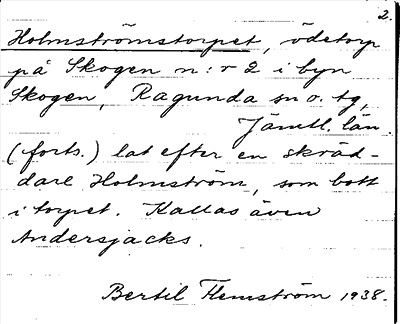 2.
Holmströmstorpet, ödetorp
på Skogen n:r 2 i byn
Skogen, Ragunda sn o. tg,
Jämtl. län
(forts.) lat efter en skräd-
dare Holmström, som bott
i torpet. Kallas även
Andersjacks.
Bertil Flemström 1938.